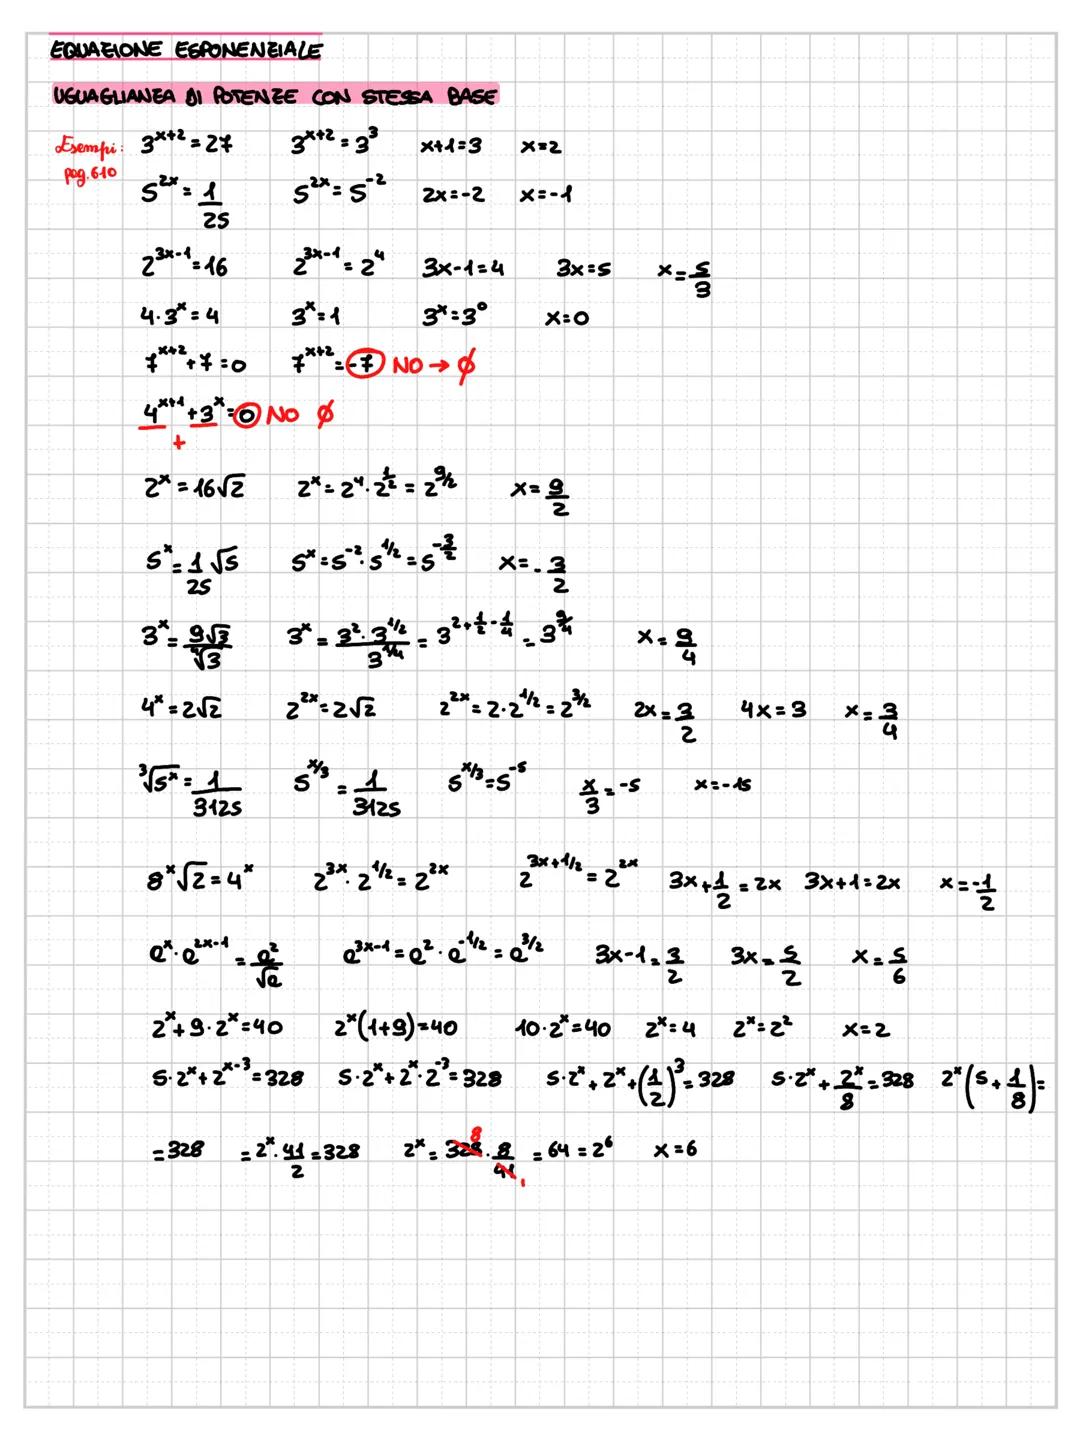 EQUAZIONE ESPONENZIALE
UGUAGLIANZA DI POTENZE CON STESSA BASE
Esempi: 3^(x+2) = 27   3^(x+2) = 3^3   x+1=3   x=2
pag. 610
5^(2x) = 1/25   5^(2x) = 5^(-2)   2x=-2   x=-1
2^(3x-1) = 16   2^(3x-1) = 2^4   3x-1=4   3x=5   x=5/3
4·3^x = 4   3^x = 1   3^x = 3^0   x=0
7^(x+2) + 7 = 0   7^(x+2) = -7 NO → ∅
4^(x+1) + 3^x = 0 NO ∅
+
2^x = 16√2   2^x = 2^4 · 2^(1/2) = 2^(9/2)   x = 9/2
5^x = 1/25 √5   5^x = 5^(-2) · 5^(1/2) = 5^(-3/2)   x = -3/2
3^x = 9√3/∜3   3^x = 3^2 · 3^(1/2)/3^(1/4) = 3^(2+1/2-1/4) = 3^(9/4)   x = 9/4
4^x = 2√2   2^(2x) = 2√2   2^(2x) = 2·2^(1/2) = 2^(3/2)   2x = 3/2   4x = 3   x = 3/4
∛(5^x) = 1/3125   5^(x/3) = 1/3125   5^(x/3) = 5^(-5)   x/3 = -5   x = -15
8^x √2 = 4^x   2^(3x) · 2^(1/2) = 2^(2x)   2^(3x+1/2) = 2^(2x)   3x + 1/2 = 2x   3x+1 = 2x   x = -1/2
e^x · e^(2x-1) = e^2/√e   e^(3x-1) = e^2 · e^(-1/2) = e^(3/2)   3x-1 = 3/2   3x = 5/2   x = 5/6
2^x + 9·2^x = 40   2^x(1+9) = 40   10·2^x = 40   2^x = 4   2^x = 2^2   x = 2
5·2^x + 2^(x-3) = 328   5·2^x + 2^x · 2^(-3) = 328   5·2^x + 2^x + (1/2)^3 = 328   5·2^x + 2^x/8 = 328   2^x(5 + 1/8) =
= 328   = 2^x · 41/2 = 328   2^x = 328 8 · 8/41 1 = 64 = 2^6   x = 6